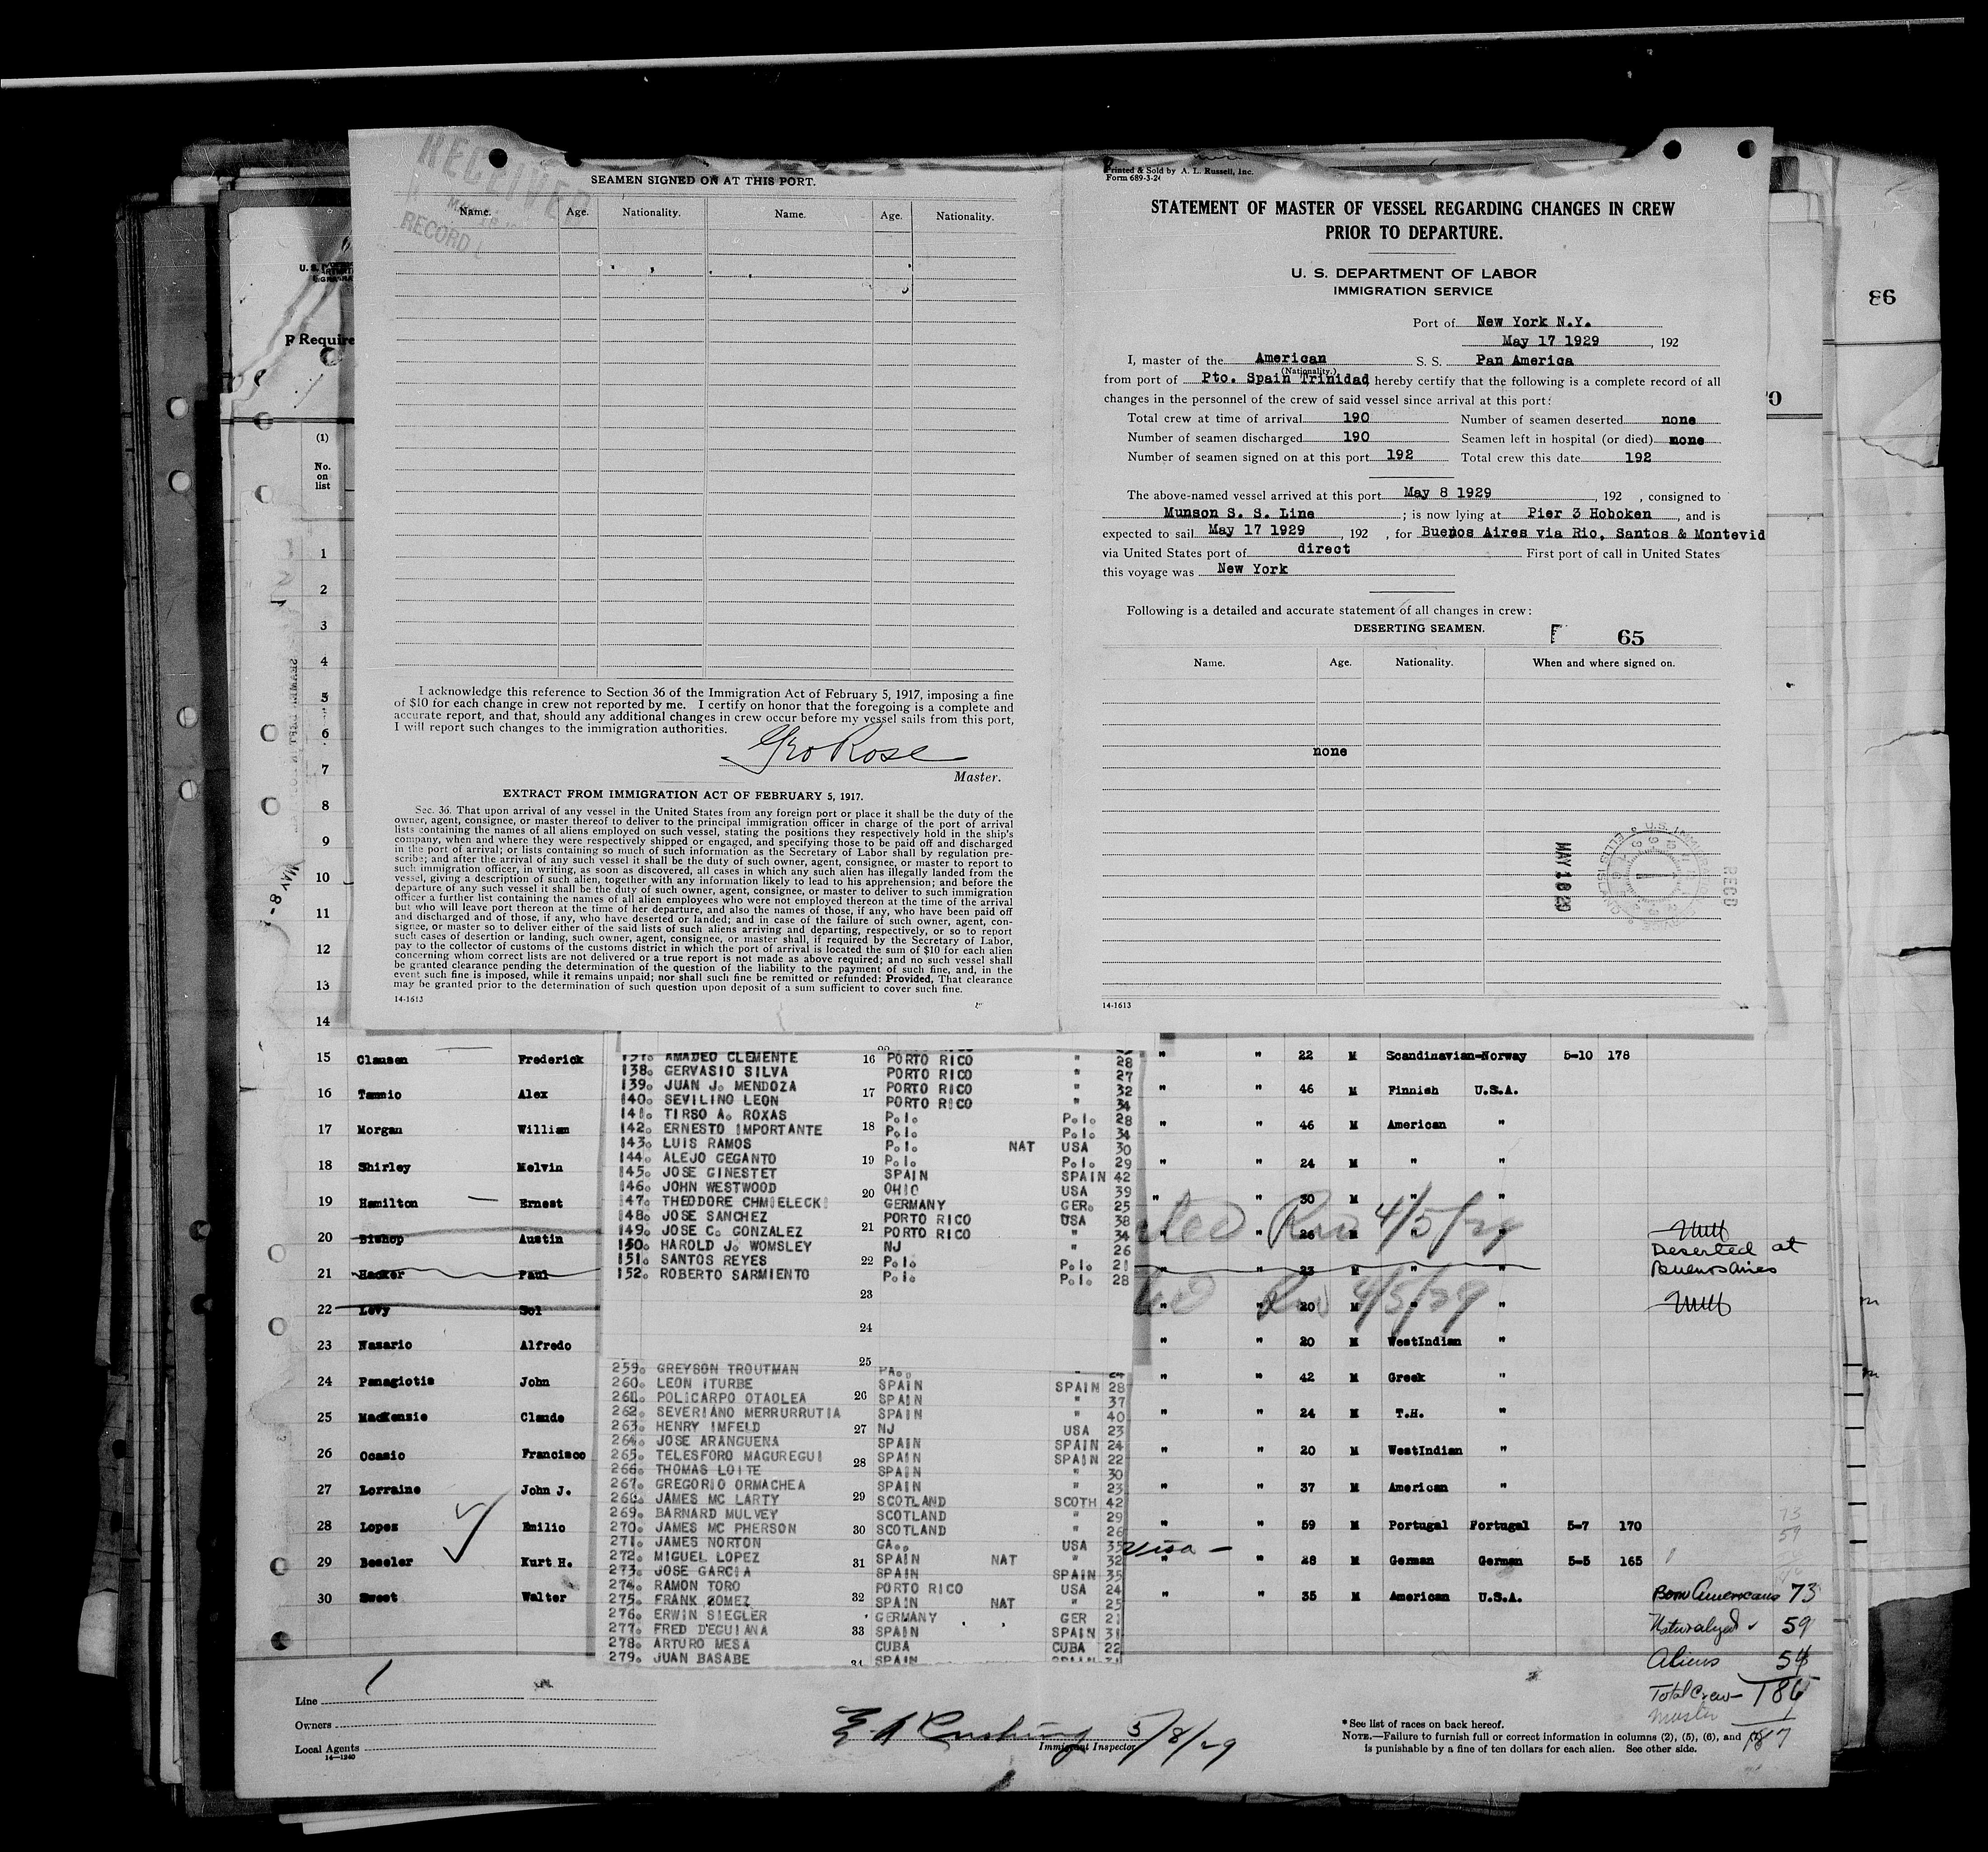 RECEIVED
RECORD
SEAMEN SIGNED ON AT THIS PORT.
Name. Age. Nationality. Name. Age. Nationality.
I acknowledge this reference to Section 36 of the Immigration Act of February 5, 1917, imposing a fine
of $10 for each change in crew not reported by me. I certify on honor that the foregoing is a complete and
accurate report, and that, should any additional changes in crew occur before my vessel sails from this port,
I will report such changes to the immigration authorities.
Geo Rose
Master.
EXTRACT FROM IMMIGRATION ACT OF FEBRUARY 5, 1917.
Sec. 36. That upon arrival of any vessel in the United States from any foreign port or place it shall be the duty of the
owner, agent, consignee, or master thereof to deliver to the principal immigration officer in charge of the port of arrival
lists containing the names of all aliens employed on such vessel, stating the positions they respectively hold in the ship's
company, when and where they were respectively shipped or engaged, and specifying those to be paid off and discharged
in the port of arrival; or lists containing so much of such information as the Secretary of Labor shall by regulation pre-
scribe; and after the arrival of any such vessel it shall be the duty of such owner, agent, consignee, or master to report to
such immigration officer, in writing, as soon as discovered, all cases in which any such alien has illegally landed from the
vessel, giving a description of such alien, together with any information likely to lead to his apprehension; and before the
departure of any such vessel it shall be the duty of such owner, agent, consignee, or master to deliver to such immigration
officer a further list containing the names of all alien employees who were not employed thereon at the time of the arrival
but who will leave port thereon at the time of her departure, and also the names of those, if any, who have been paid off
and discharged and of those, if any, who have deserted or landed; and in case of the failure of such owner, agent, con-
signee, or master so to deliver either of the said lists of such aliens arriving and departing, respectively, or so to report
such cases of desertion or landing, such owner, agent, consignee, or master shall, if required by the Secretary of Labor,
pay to the collector of customs of the customs district in which the port of arrival is located the sum of $10 for each alien
concerning whom correct lists are not delivered or a true report is not made as above required; and no such vessel shall
be granted clearance pending the determination of the question of the liability to the payment of such fine, and, in the
event such fine is imposed, while it remains unpaid; nor shall such fine be remitted or refunded: Provided, That clearance
may be granted prior to the determination of such question upon deposit of a sum sufficient to cover such fine.
14-1613
Printed & Sold by A. L. Russell, Inc.
Form 689-3-24
STATEMENT OF MASTER OF VESSEL REGARDING CHANGES IN CREW
PRIOR TO DEPARTURE.
U. S. DEPARTMENT OF LABOR
IMMIGRATION SERVICE
Port of New York N.Y.
May 17 1929, 192
I, master of the American S. S. Pan America
(Nationality.)
from port of Pto. Spain Trinidad hereby certify that the following is a complete record of all
changes in the personnel of the crew of said vessel since arrival at this port:
Total crew at time of arrival 190 Number of seamen deserted none
Number of seamen discharged 190 Seamen left in hospital (or died) none
Number of seamen signed on at this port 192 Total crew this date 192
The above-named vessel arrived at this port May 8 1929, 192 , consigned to
Munson S. S. Line ; is now lying at Pier 3 Hoboken, and is
expected to sail May 17 1929, 192 , for Buenos Aires via Rio, Santos & Montevid
via United States port of direct First port of call in United States
this voyage was New York
Following is a detailed and accurate statement of all changes in crew:
DESERTING SEAMEN. 65
Name. Age. Nationality. When and where signed on.
none
MAY 18 29
REC'D
14-1613
86
Require
(1)
No.
on
list
1
2
3
4
5
6
7
8
9
10
11
12
13
14
MAY - 8
15 Clausen Frederick " " 22 M Scandinavian-Norway 5-10 178
16 Tammio Alex " " 46 M Finnish U.S.A.
17 Morgan William " " 46 M American "
18 Shirley Melvin " " 24 M " "
19 Hamilton Ernest " " 30 M " "
20 Bishop Austin " 26 M " 4/5/29
21 Hacker Paul " " 23 M " " Deserted at Buenos Aires
22 Levy Sol " 20 M " " 4/5/29
23 Nazario Alfredo " " 20 M WestIndian "
24 Panagiotis John " " 42 M Greek "
25 MacKenzie Claude " " 24 M T.H. "
26 Ocasio Francisco " " 20 M WestIndian "
27 Lorraine John J. " " 37 M American "
28 Lopez Emilio " " 59 M Portugal Portugal 5-7 170
29 Beseler Kurt H. visa - " " 28 M German German 5-5 165
30 Sweet Walter " " 35 M American U.S.A.
137. AMADEO CLEMENTE 16 PORTO RICO " 28
138. GERVASIO SILVA PORTO RICO " 27
139. JUAN J. MENDOZA 17 PORTO RICO " 32
140. SEVILINO LEON PORTO RICO " 34
141. TIRSO A. ROXAS P.I. P.I. 28
142. ERNESTO IMPORTANTE 18 P.I. P.I. 34
143. LUIS RAMOS P.I. NAT USA 30
144. ALEJO GEGANTO 19 P.I. P.I. 29
145. JOSE GINESTET SPAIN SPAIN 42
146. JOHN WESTWOOD 20 OHIO USA 39
147. THEODORE CHMIELECKI GERMANY GER. 25
148. JOSE SANCHEZ PORTO RICO USA 38
149. JOSE C. GONZALEZ 21 PORTO RICO " 34
150. HAROLD J. WOMSLEY NJ " 26
151. SANTOS REYES 22 P.I. P.I. 21
152. ROBERTO SARMIENTO P.I. P.I. 28
23
24
25
259. GREYSON TROUTMAN PA.. " 24
260. LEON ITURBE SPAIN SPAIN 28
261. POLICARPO OTAOLEA 26 SPAIN " 37
262. SEVERIANO MERRURRUTIA SPAIN " 40
263. HENRY IMFELD 27 NJ USA 23
264. JOSE ARANGUENA SPAIN SPAIN 24
265. TELESFORO MAGUREGUI SPAIN SPAIN 22
266. THOMAS LOITE 28 SPAIN " 30
267. GREGORIO ORMACHEA SPAIN " 23
268. JAMES MC LARTY 29 SCOTLAND SCOTH 42
269. BARNARD MULVEY SCOTLAND " 29
270. JAMES MC PHERSON 30 SCOTLAND " 26
271. JAMES NORTON GA.. USA 35
272. MIGUEL LOPEZ 31 SPAIN NAT " 32
273. JOSE GARCIA SPAIN SPAIN 35
274. RAMON TORO PORTO RICO USA 24
275. FRANK GOMEZ 32 SPAIN NAT " 25
276. ERWIN SIEGLER GERMANY GER 21
277. FRED D'EGUIANA 33 SPAIN SPAIN 31
278. ARTURO MESA CUBA CUBA 22
279. JUAN BASABE 34 SPAIN SPAIN
Born Americans 73
Naturalized 59
Aliens 54
Total Crew - 186
Master 1
187
Line
Owners
Local Agents
14-1240
5/8/29
Immigrant Inspector
* See list of races on back hereof.
NOTE.—Failure to furnish full or correct information in columns (2), (5), (6), and
is punishable by a fine of ten dollars for each alien. See other side.